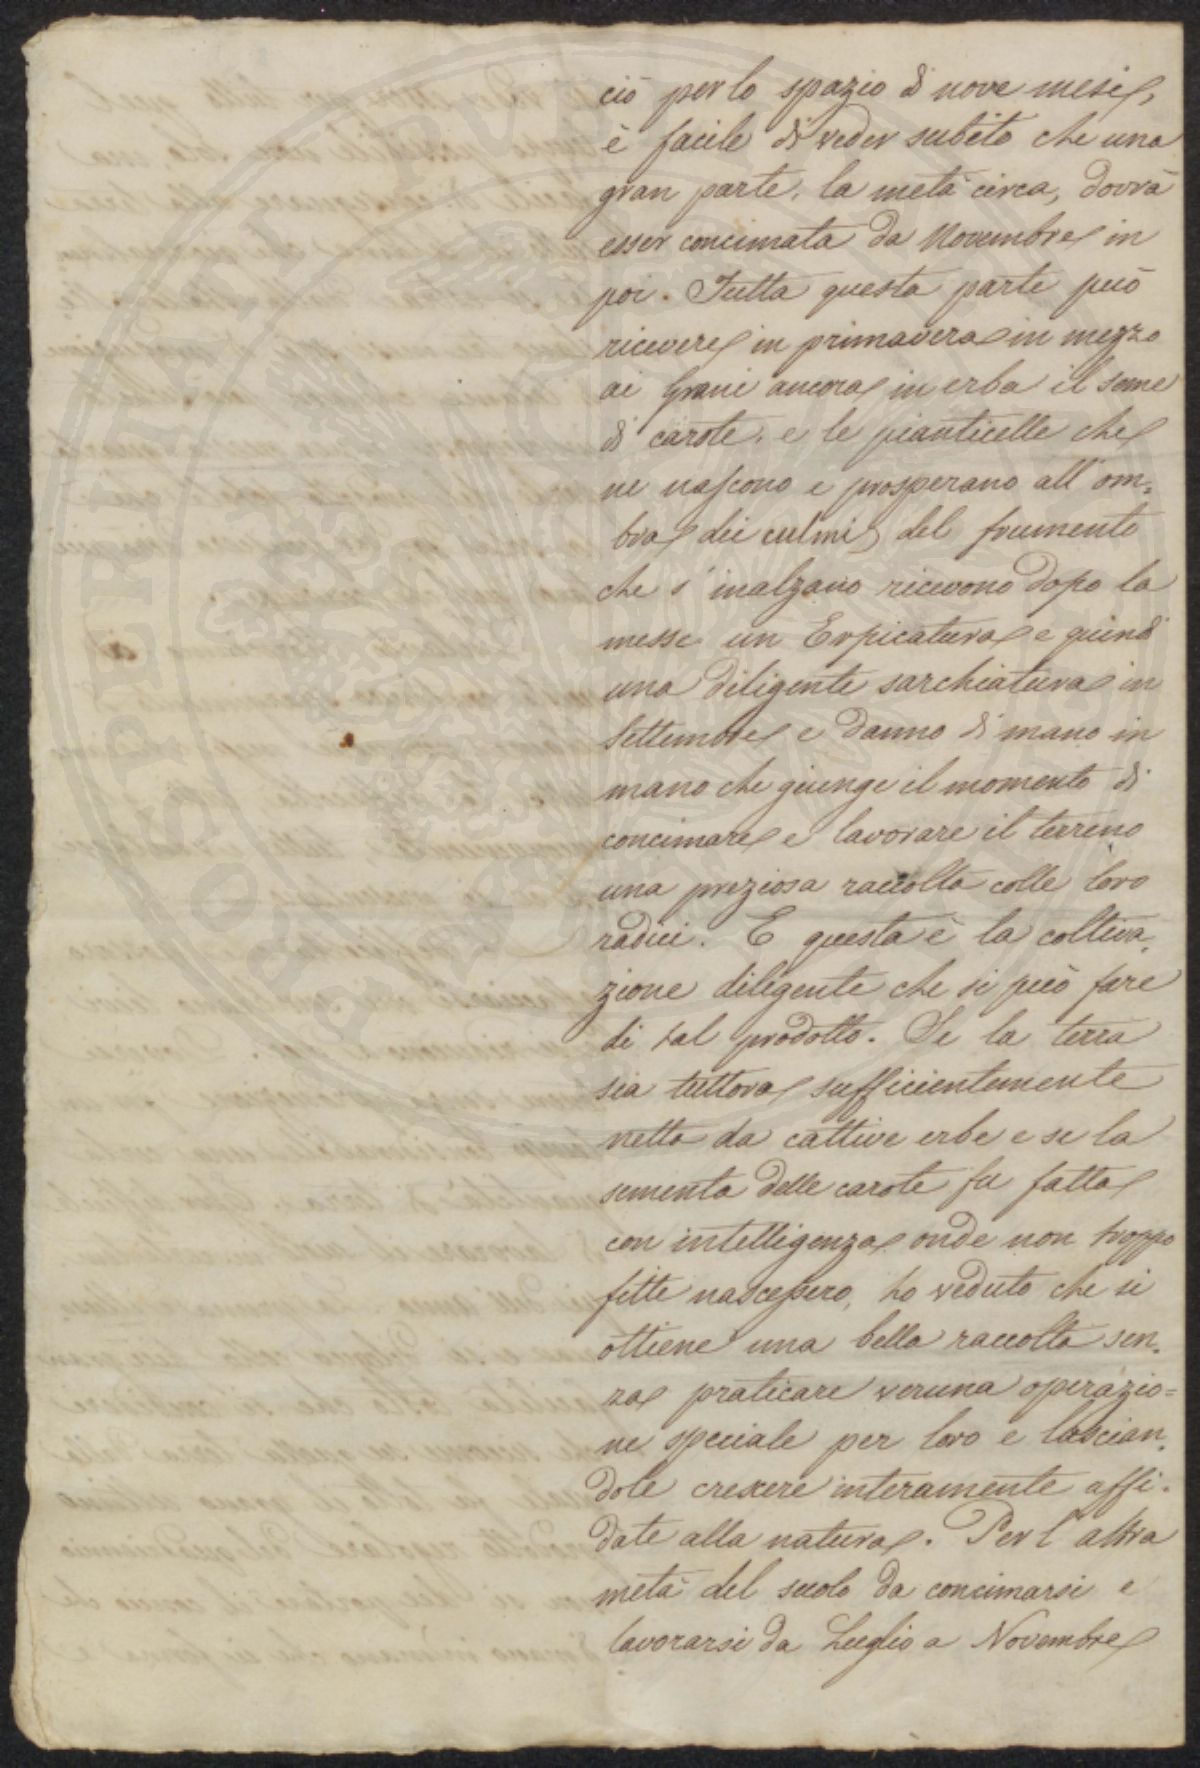 ciò per lo spazio di nove mesi,
è facile di veder subito che una
gran parte, la metà circa, dovrà
esser concimata da Novembre in
poi. Tutta questa parte può
ricevere in primavera in mezzo
ai Grani ancora in erba il seme
di carote, e le pianticelle che
ne nascono e prosperano all'om=
bra dei culmi del frumento
che s'inalzano ricevono dopo la
messe un Erpicatura e quindi
una diligente sarchiatura in
Settembre e danno di mano in
mano che giunge il momento di
concimare e lavorare il terreno
una preziosa raccolta colle loro
radici. E questa è la coltiva=
zione diligente che si può fare
di tal prodotto. Se la terra
sia tuttora sufficientemente
netta da cattive erbe e se la
sementa delle carote fu fatta
con intelligenza onde non troppo
fitte nascessero, ho veduto che si
ottiene una bella raccolta sen=
za praticare veruna operazio=
ne speciale per loro e lascian=
dole crescere interamente affi=
date alla natura. Per l'altra
metà del suolo da concimarsi e
lavorarsi da Luglio a Novembre